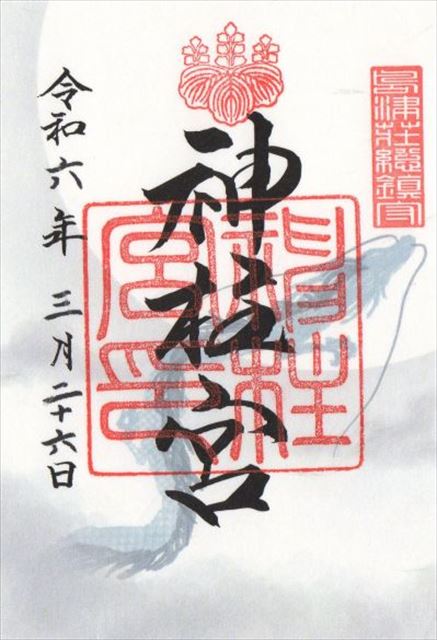 島津莊總鎮守
神柱宮
縣社
神柱
宮印
令和六年 三月二十六日